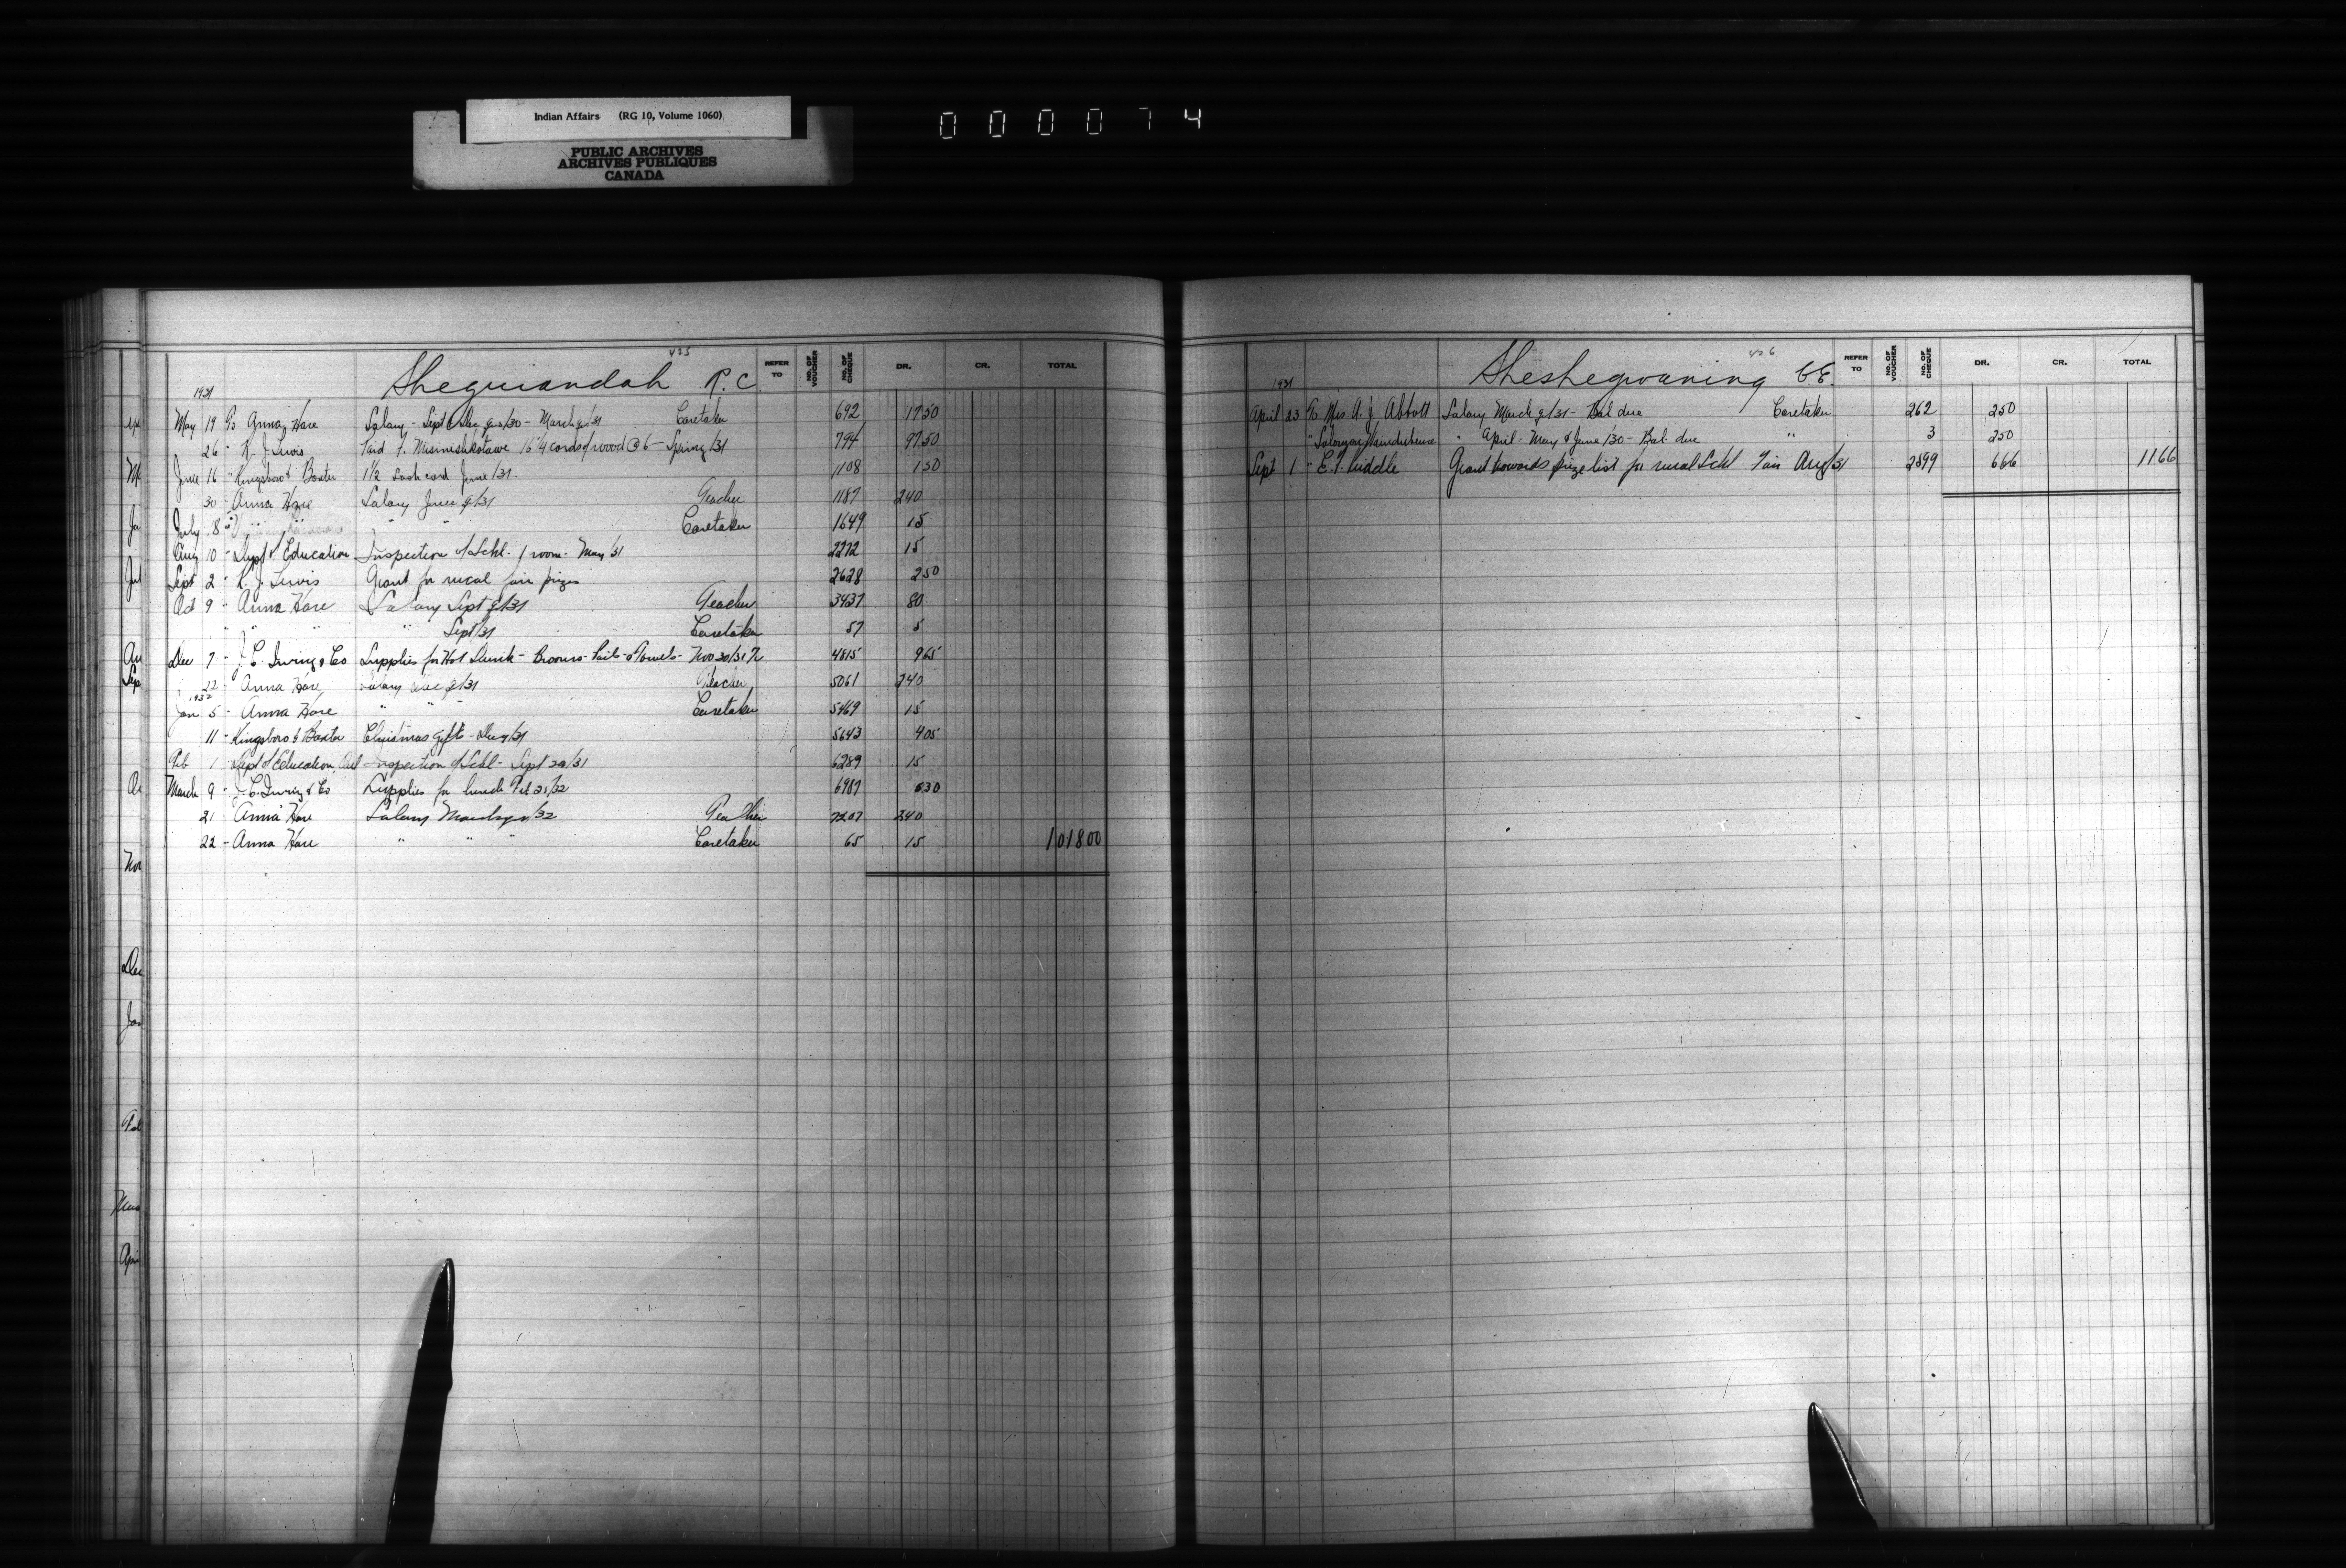 Indian Affairs (RG 10, Volume 1060)
PUBLIC ARCHIVES
ARCHIVES PUBLIQUES
CANADA
000074
425
Sheguiandah R.C. REFER TO NO. OF VOUCHER NO. OF CHEQUE DR. CR. TOTAL
1931
May 19 To Anna Hare Salary - Sept & Dec qrs/30 - March q/31 Caretaker 692 17 50
26 - R. J. Lewis Paid F. 16 1/4 cords of wood @ 6 - Spring/31 794 97 50
June 16 - Kingsboro & Baxter 1 1/2 Sash cord June/31 - 1108 1 50
30 - Anna Hare Salary June q/31 Teacher 1187 240
July 8 " " " Caretaker 1649 15
Aug 10 - Dept of Education Inspection of Schl. 1 room - May/31 2272 15
Sept 2 - R. J. Lewis Grant for rural fair prizes 2628 2 50
Oct 9 - Anna Hare Salary Sept q/31 Teacher 3437 80
" " " " Sept/31 Caretaker 57 5
Dec 7 - J. C. Irving & Co Supplies for Hot - Brooms - Pails - Towels - Nov 30/31 4815 9 65
22 - Anna Hare Salary Dec q/31 Teacher 5061 240
1932
Jan 5 - Anna Hare " " " Caretaker 5469 15
11 - Kingsboro & Baxter Christmas gifts - Dec/31 5643 4 05
Feb 1 - Dept of Education, Ont Inspection of Schl - Sept 20/31 6289 15
March 9 - J. C. Irving & Co Supplies for lunch Feb 21/32 6987 5 30
21 - Anna Hare Salary March q/32 Teacher 7207 240
22 - Anna Hare " " " Caretaker 65 15 1018 00
426
Sheshegwaning C.E. REFER TO NO. OF VOUCHER NO. OF CHEQUE DR. CR. TOTAL
1931
April 23 To Mrs A. J. Abbott Salary March q/31 - Bal due Caretaker 262 2 50
" " April - May & June/30 - Bal. due " 3 2 50
Sept 1 - E. T. Liddle Grant towards prize list for rural Schl Fair Aug/31 2599 6 66 11 66